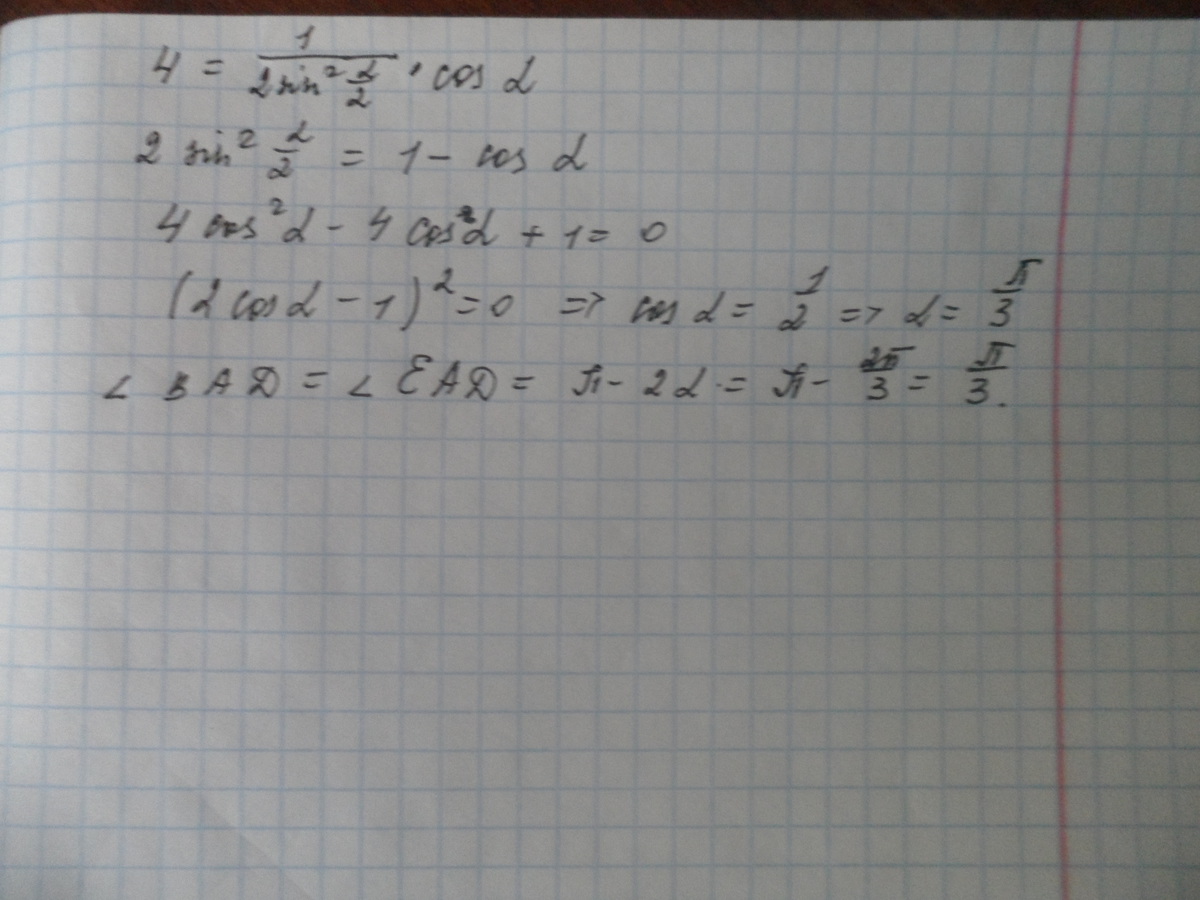 4 = 1/(2 sin² α/2) · cos α
2 sin² α/2 = 1 - cos α
4 cos² α - 4 cos α + 1 = 0
(2 cos α - 1)² = 0 => cos α = 1/2 => α = π/3
∠ BAD = ∠ EAD = π - 2α = π - 2π/3 = π/3.